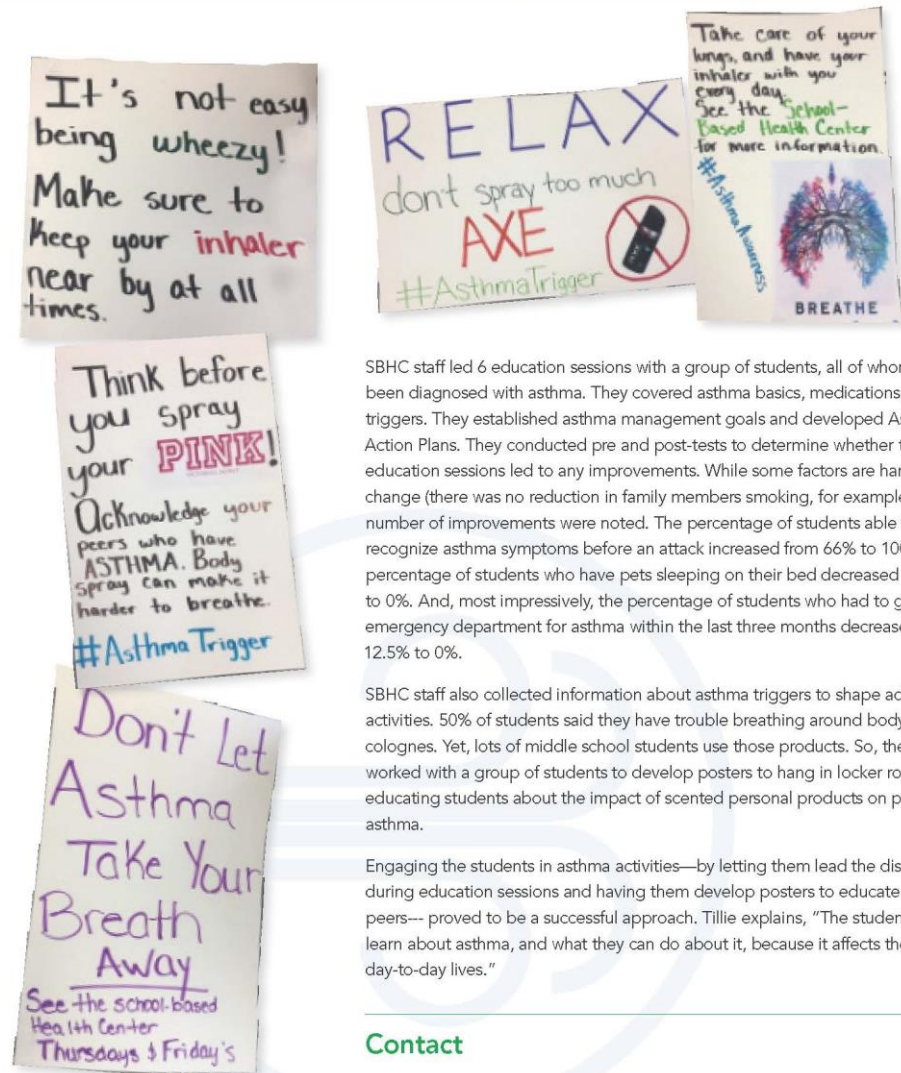 It's not easy
being wheezy!
Make sure to
keep your inhaler
near by at all
times.
RELAX
don't spray too much
AXE
#AsthmaTrigger
Take care of your
lungs, and have your
inhaler with you
every day.
See the School-
Based Health Center
for more information.
#AsthmaAwareness
BREATHE
Think before
you spray
your PINK!
Acknowledge your
peers who have
ASTHMA. Body
spray can make it
harder to breathe.
#AsthmaTrigger
Don't Let
Asthma
Take Your
Breath
Away
See the school-based
Health Center
Thursdays & Friday's
SBHC staff led 6 education sessions with a group of students, all of whom
been diagnosed with asthma. They covered asthma basics, medications
triggers. They established asthma management goals and developed As
Action Plans. They conducted pre and post-tests to determine whether
education sessions led to any improvements. While some factors are har
change (there was no reduction in family members smoking, for example
number of improvements were noted. The percentage of students able
recognize asthma symptoms before an attack increased from 66% to 100
percentage of students who have pets sleeping on their bed decreased
to 0%. And, most impressively, the percentage of students who had to g
emergency department for asthma within the last three months decrease
12.5% to 0%.
SBHC staff also collected information about asthma triggers to shape ad
activities. 50% of students said they have trouble breathing around body
colognes. Yet, lots of middle school students use those products. So, the
worked with a group of students to develop posters to hang in locker ro
educating students about the impact of scented personal products on p
asthma.
Engaging the students in asthma activities—by letting them lead the dis
during education sessions and having them develop posters to educate
peers--- proved to be a successful approach. Tillie explains, "The studen
learn about asthma, and what they can do about it, because it affects the
day-to-day lives."
Contact